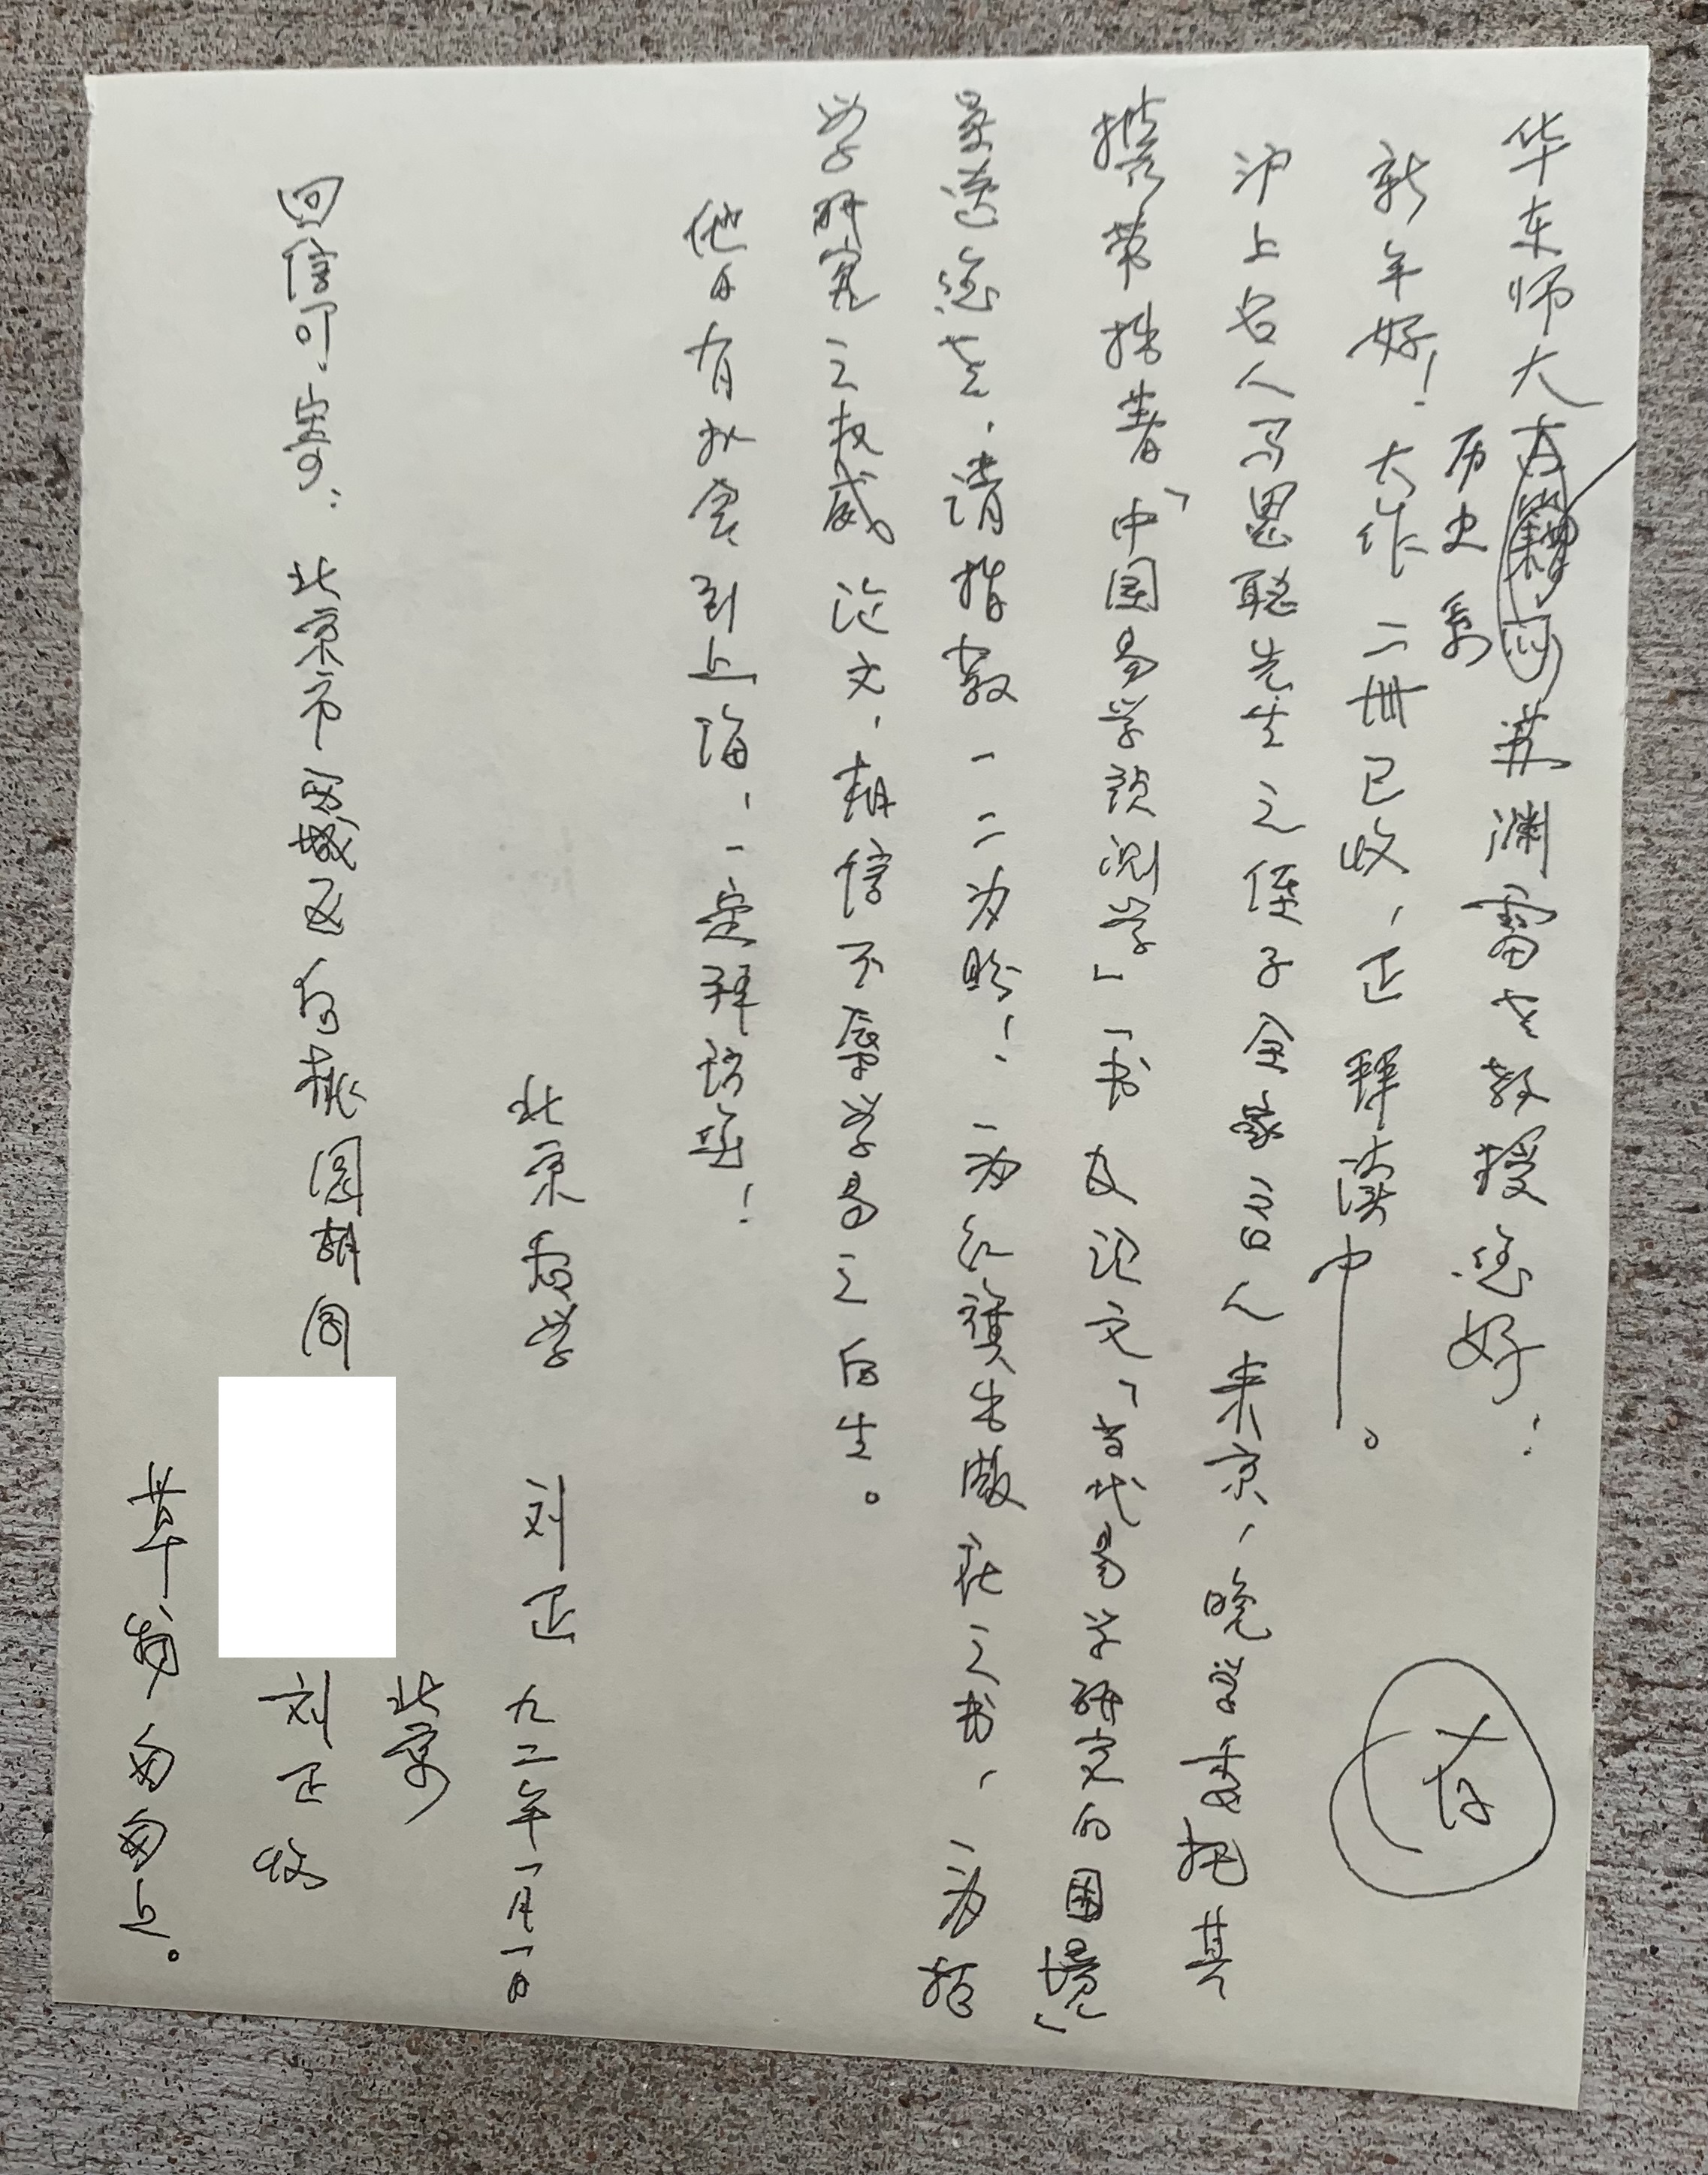 华东师大古籍所苏渊雷老教授您好：
历史系
新年好！大作二册已收，正拜读中。
沪上名人马思聪先生之侄子全家三百人来京，晚辈托其
携带拙著「中国易学预测学」一书及论文「当代易学研究的困境」
呈送您老，请指教一二为盼！一为红旗出版社之书，一为拙
学研究之权威论文，相信不辱学易之后生。
他日有机会到上海，一定拜访您！
北京 刘正 九二年一月一日
北京
回信可寄：北京市西城区 桃园胡同 刘正收
草 匆匆上。
存